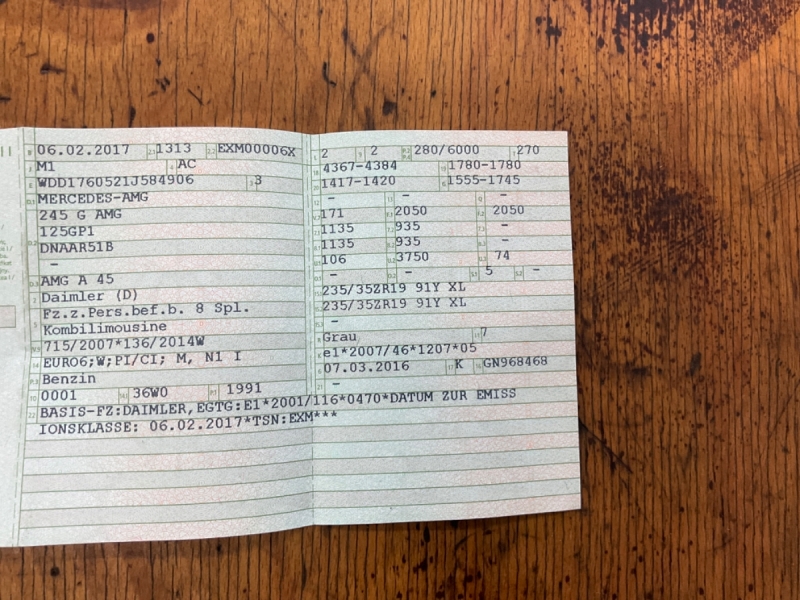 06.02.2017 1313 EXM00006X
M1 AC
WDD1760521J584906 3
MERCEDES-AMG
245 G AMG
125GP1
DNAAR51B
–
AMG A 45
Daimler (D)
Fz.z.Pers.bef.b. 8 Spl.
Kombilimousine
715/2007*136/2014W
EURO6;W;PI/CI; M, N1 I
Benzin
0001 36W0 1991
BASIS-FZ:DAIMLER,EGTG:E1*2001/116*0470*DATUM ZUR EMISS
IONSKLASSE: 06.02.2017*TSN:EXM***
2 2 280/6000 270
4367-4384 1780-1780
1417-1420 1555-1745
– – –
171 2050 2050
1135 935 –
1135 935 –
106 3750 74
– – 5 –
235/35ZR19 91Y XL
235/35ZR19 91Y XL
–
Grau 7
e1*2007/46*1207*05
07.03.2016 K GN968468
–